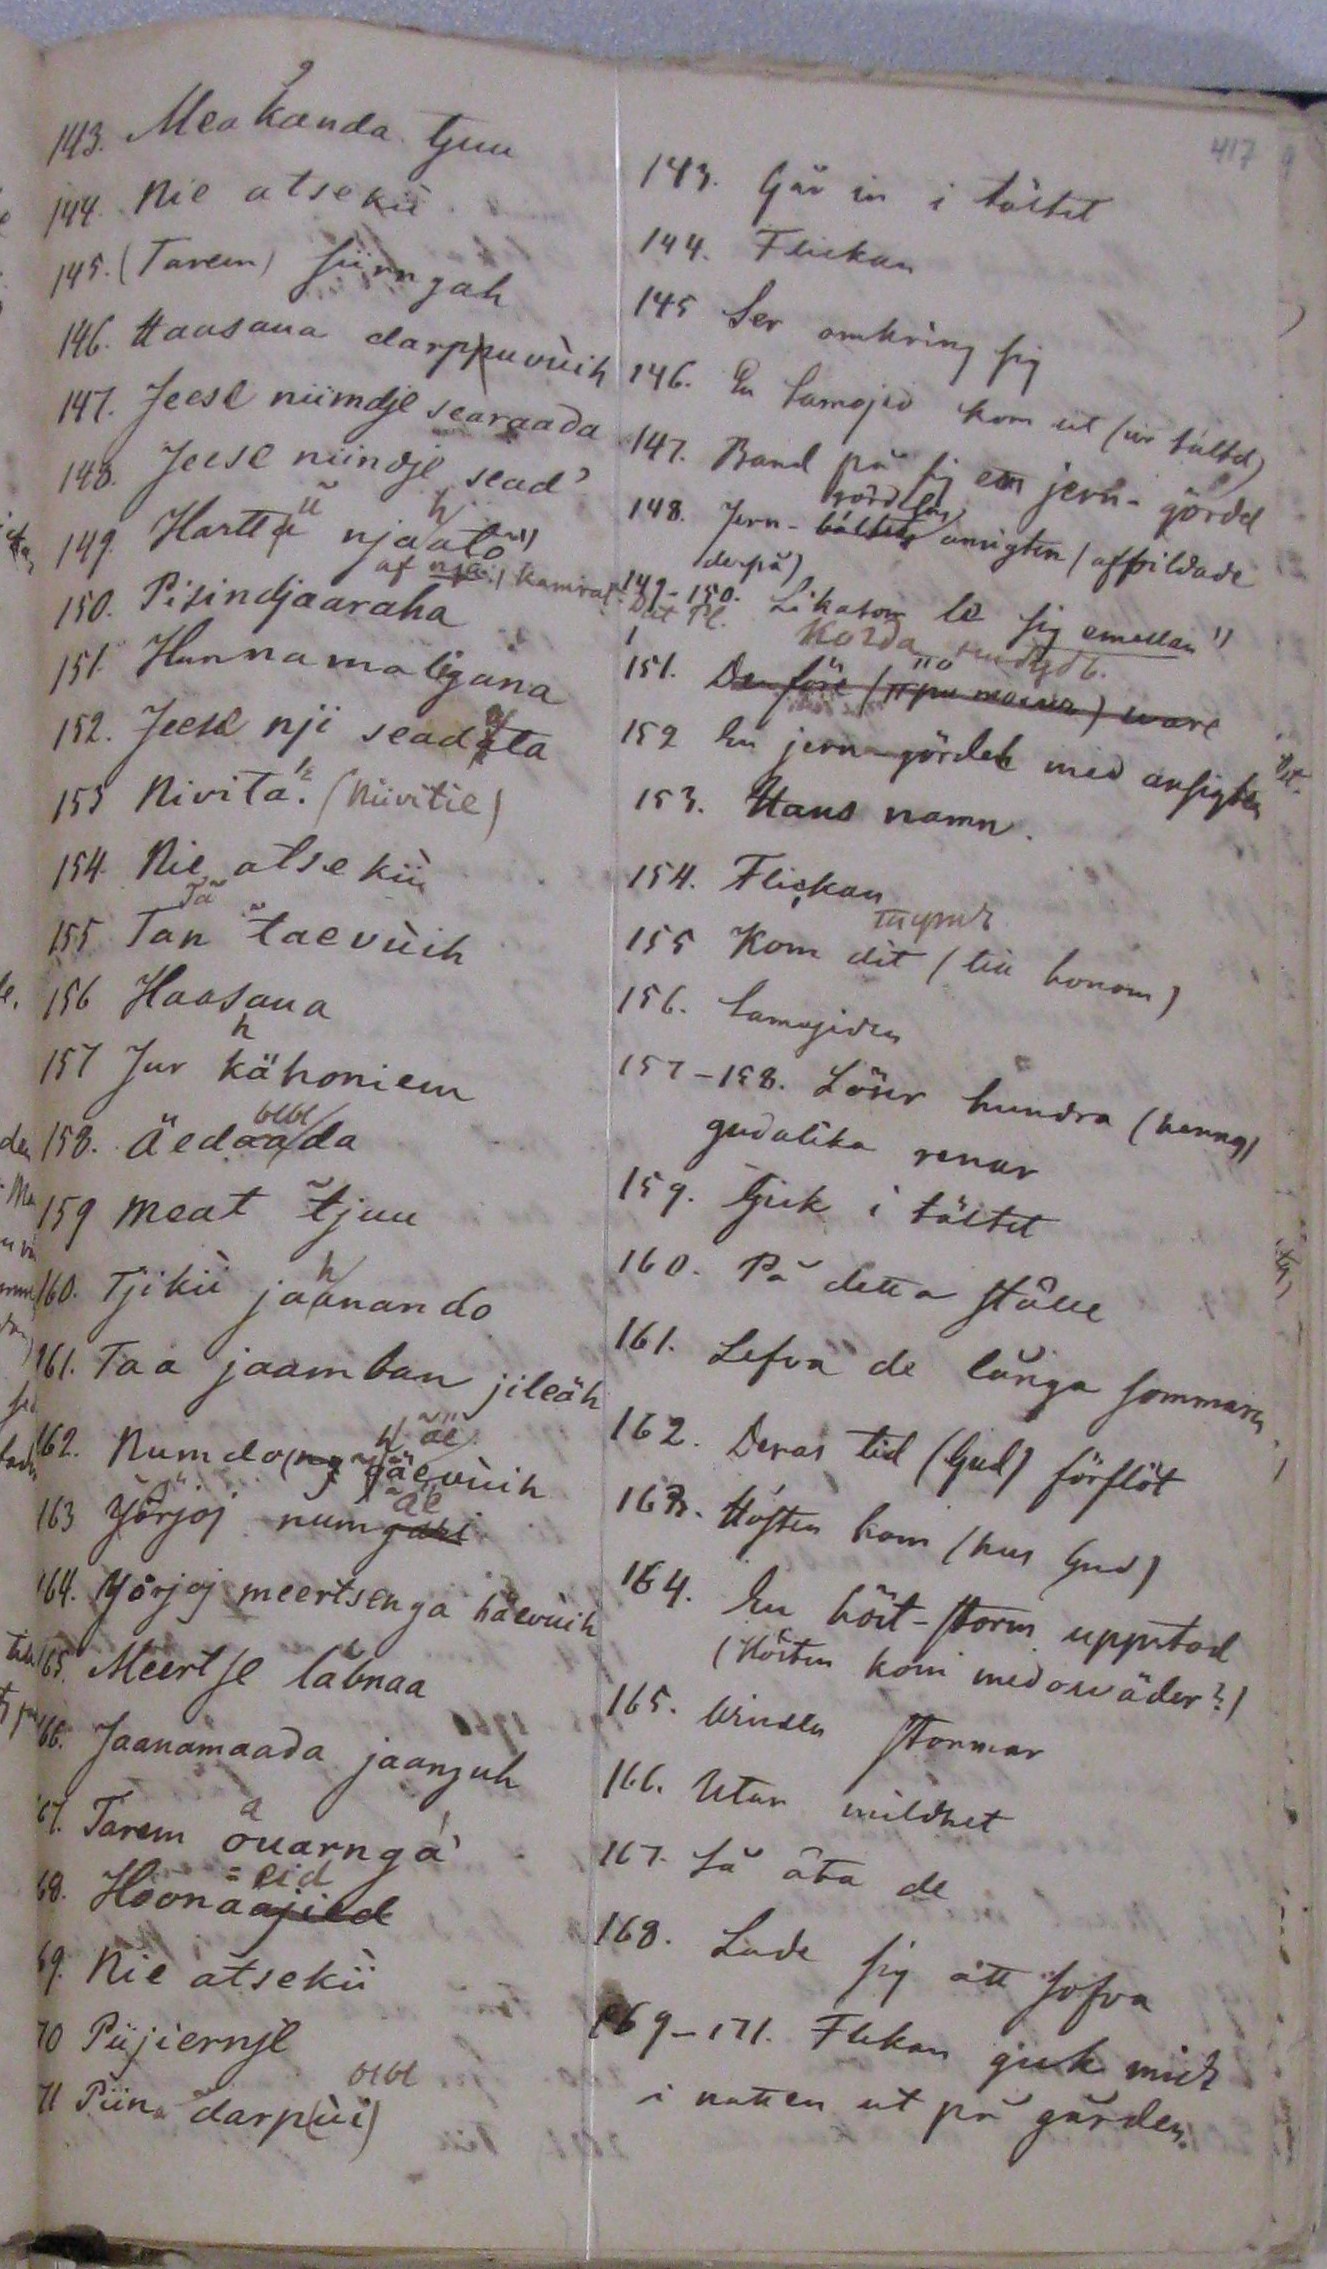 417
143. Meakanda tjuu
144. Nie atsekii
145. (Tarem) siirngah
146. Haasaua darppuvùih
147. Jeese niimdje searaada
148. Jeese niindje sead'
149. Hartta njaato
af kamrat
150. Pisindjaaraha
151. Hunnamaligana
152. Jeese nji seadata
153 Nivita. (Niivitie)
154. Nie atsekii
155 Tan taevùih
156 Haasaua
157 Jur kähoniem
158. Äedaada
159 Meat tjuu
160. Tjikii jaanando
161. Taa jaamban jileäh
162. Numdo
163 Yörjoj num
164. Yörjoj meertsenga häevùih
165. Meertse labnaa
66. Jaanamaada jaanguh
67. Tarem ouarnga'
68. Hoonaajied
69. Nie atsekii
70 Piijiernje
71 Piin darp(ùi)
143. Går in i tältet
144. Flickan
145 Ser omkring sig
146. En Samojed kom ut (ur tältet)
147. Band på sig en jern-gördel
148. Jern- ansigten (affildade
derpå)
149-150. Likasom le sig emellan
151.
152 En jern-gördel med ansigten
153. Hans namn.
154. Flickan
155 Kom dit (till honom)
156. Samojeden
157-158. Löser hundra (hennes)
gudalika renar
159. Gick i tältet
160. På detta ställe
161. Lefva de långa sommaren
162. Deras tid (Gud) förflöt
163. Hösten kom (hus Gud)
164. En höst-storm uppstod
(Hösten kom med oväder?)
165. Vinden stormar
166. Utan mildhet
167. Så äta de
168. Lade sig att sofva
169-171. Flickan gick midt
i natten ut på gården.